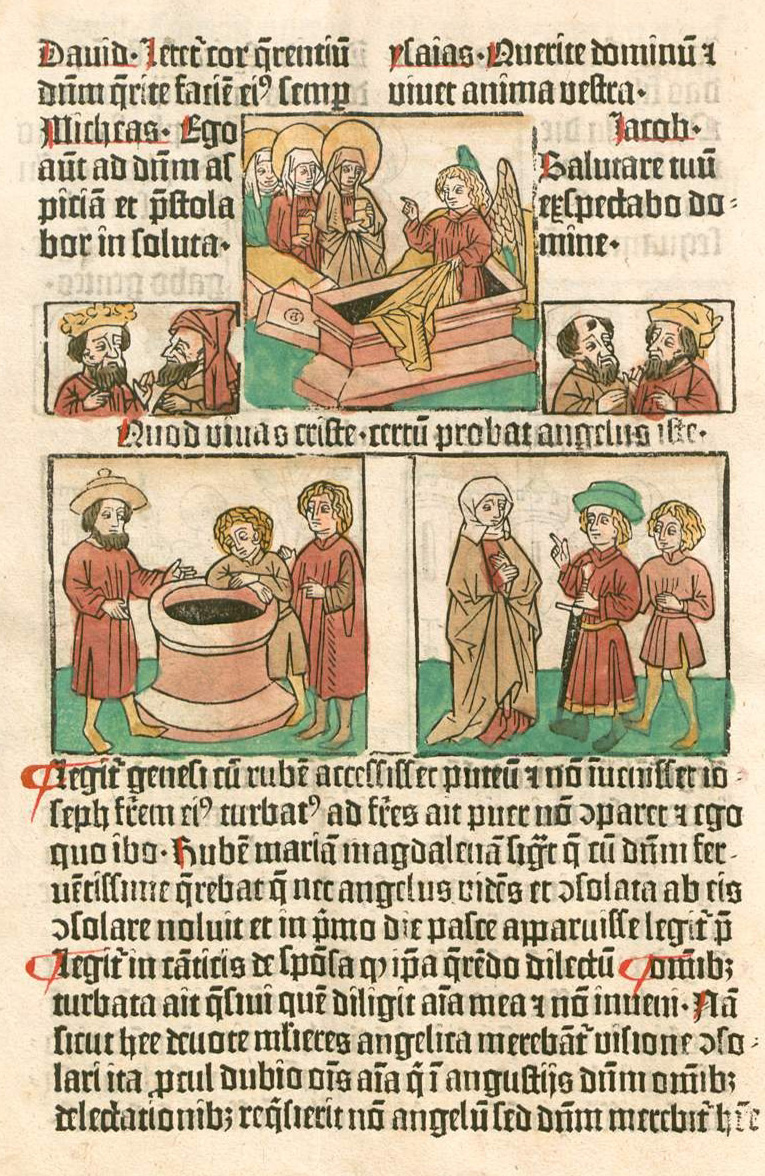 Dauid. Letet̄ cor q̄rentiū
dūm q̄rite faciē eiꝰ semꝑ
ysaias. Querite dominū ⁊
uiuet anima vestra.
Micheas. Ego
aūt ad dūm as
piciā et p̄stola
bor in soluta.
Jacob.
Salutare tuū
exspectabo do⸗
mine.
Quod viuas criste. certū probat angelus iste.
Legit̄ genesi cū rubē accessisset puteū ⁊ nō īuenisset io⸗
seph fr̄em eiꝰ turbatꝰ ad fr̄es ait puer nō ↄparet ⁊ ego
quo ibo. Rubē mariā magdalenā sigt̄ q̄ cū dūm fer⸗
uētissime q̄rebat q̄ nec angelus vidēs et ↄsolata ab eis
ↄsolare noluit et in p̄mo die pasce apparuisse legit̄ p̄
Legit̄ in cāticis de spōsa ꝙ ip̄a q̄rēdo dilectū omībꝫ
turbata ait q̄siui quē diligit aīa mea ⁊ nō inueni. Nā
sicut hee deuote mlieres angelica merebāt̄ visione ↄso⸗
lari ita ꝓcul dubio oīs aīa q̄ ī angustijs dūm omībꝫ
delectationibꝫ reqͥsierit nō angelū sed dūm merebit̄ hr̄e